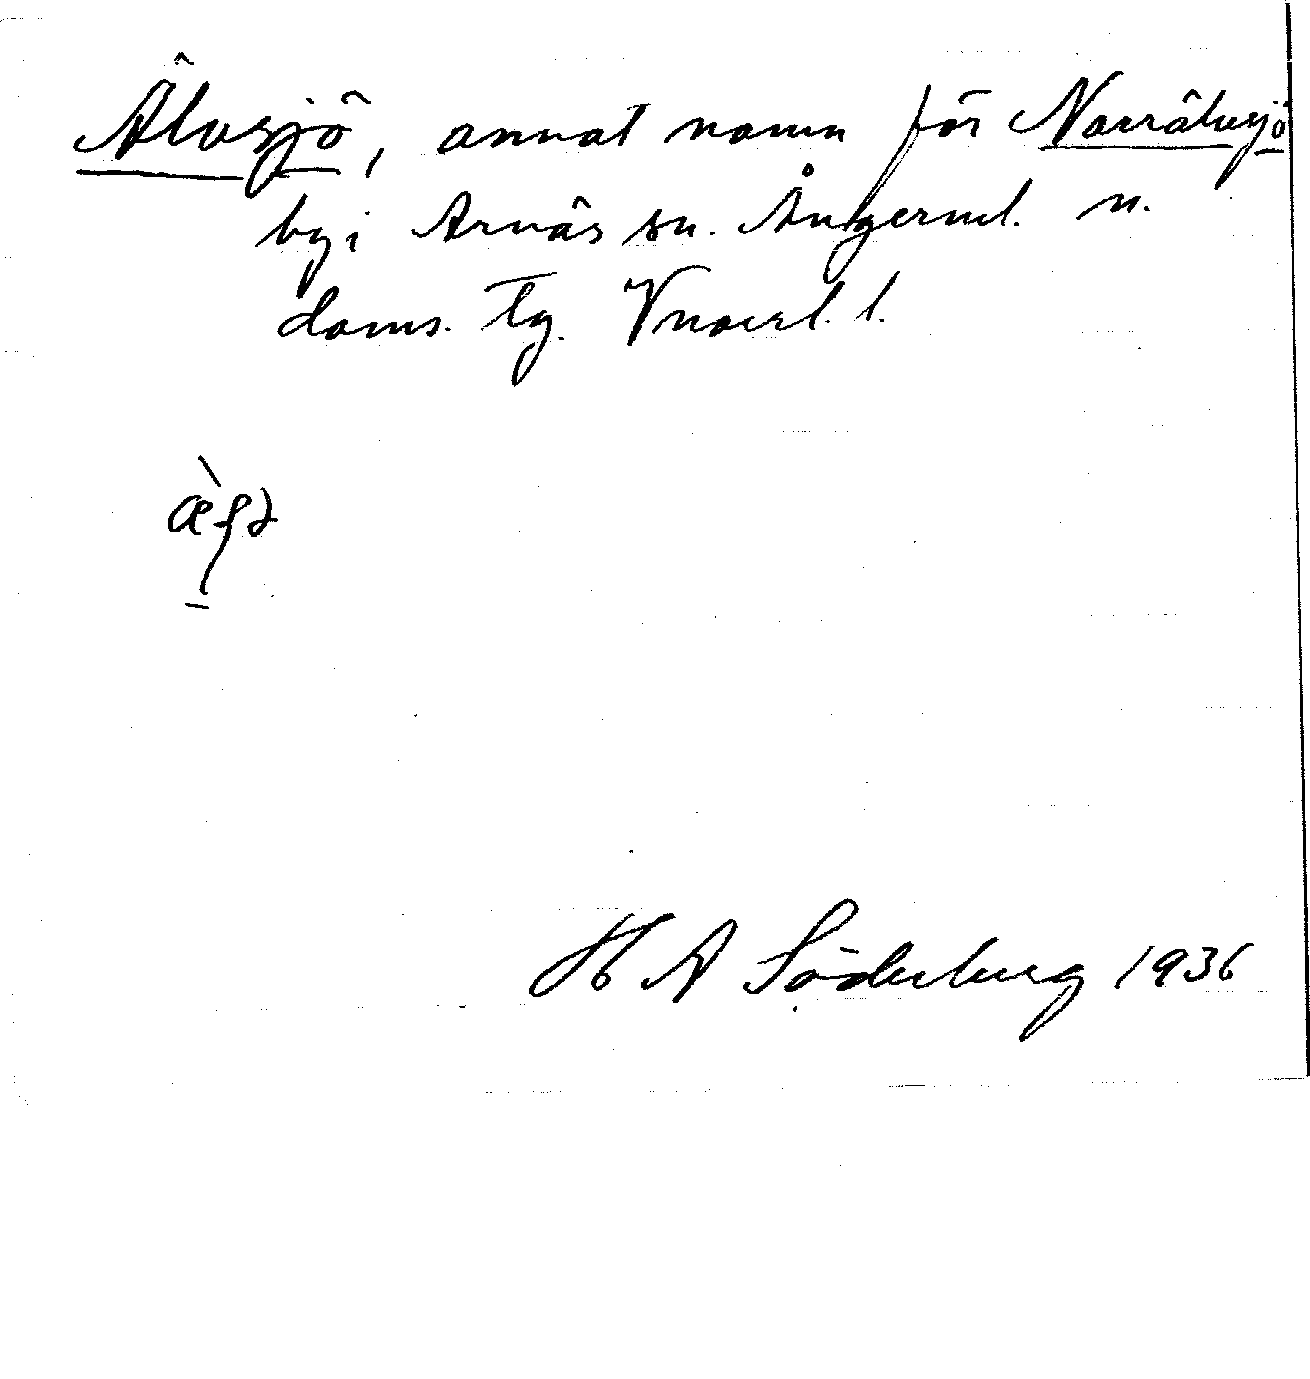 Älvsjö, annat namn för Norrälvsjö
by i Arnäs sn. Ångerml. n.
doms. tg. Vnorrl. l.
H A Söderberg 1936